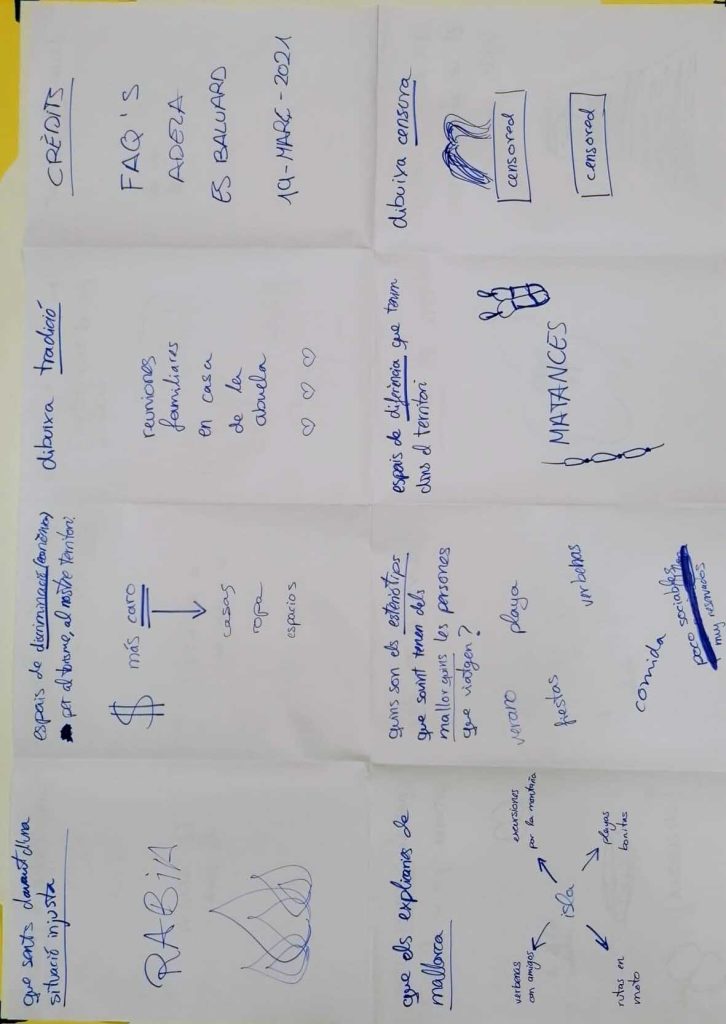 que sents davant d'una
situació injusta
RABIA
espais de discriminació (econòmica)
per al turisme, al nostre territori.
$ más caro
casas
ropa
espacios
dibuixa tradició
reuniones
familiares
en casa
de la
abuela
CRÈDITS
FAQ'S
ADEZA
ES BALUARD
19-MARÇ-2021
que els explicaries de
mallorca
verbenas
con amigos
excursiones
por la montaña
isla
rutas en
moto
playas
bonitas
quins son els esteriotips
que sovint tenen dels
mallorquins les persones
que viatgen?
verano
playa
fiestas
verbenas
comida
poco sociables
muy reservados
espais de diferència que tenim
dins el territori
MATANCES
dibuixa censura
censored
censored